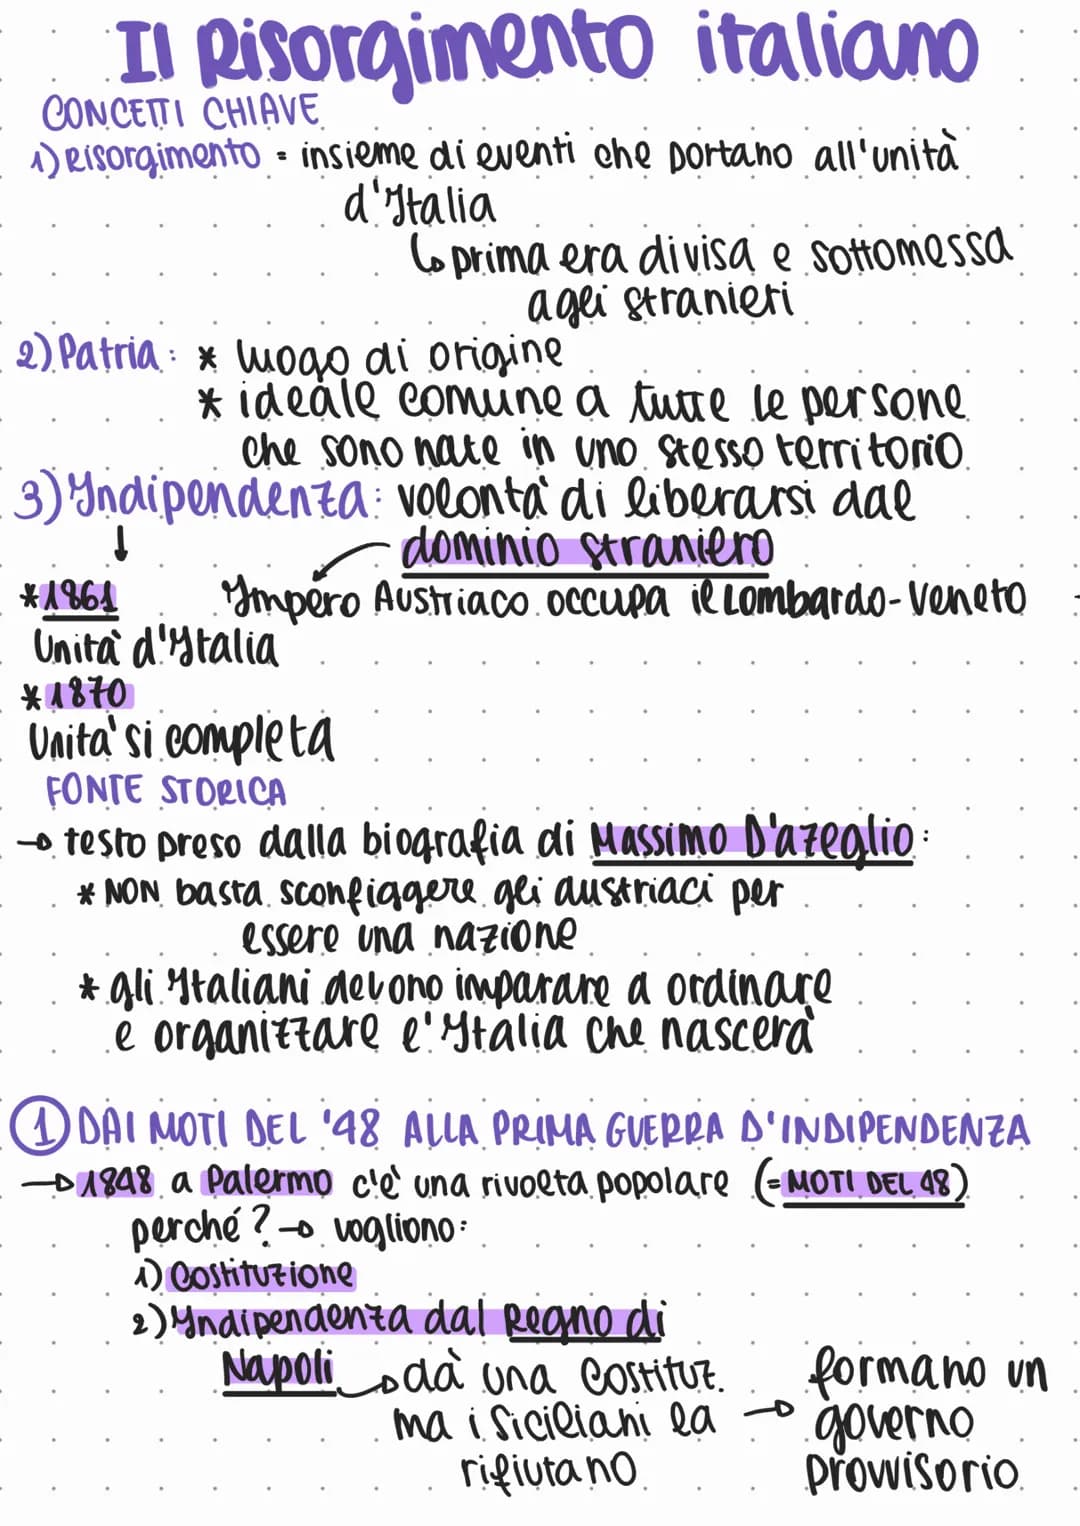 Il Risorgimento italiano
CONCETTI CHIAVE
1) Risorgimento = insieme di eventi che portano all'unità
d'Italia
↳ prima era divisa e sottomessa
agli stranieri
2) Patria: * luogo di origine
* ideale comune a tutte le persone
che sono nate in uno stesso territorio
3) Indipendenza: volontà di liberarsi dal
↓ dominio straniero
*1861 Impero Austriaco occupa il Lombardo-Veneto
Unità d'Italia
*1870
Unità si completa
FONTE STORICA
→ testo preso dalla biografia di Massimo D'azeglio:
* NON basta sconfiggere gli austriaci per
essere una nazione
* gli Italiani devono imparare a ordinare
e organizzare l'Italia che nascerà
① DAI MOTI DEL '48 ALLA PRIMA GUERRA D'INDIPENDENZA
→ 1848 a Palermo c'è una rivolta popolare (= MOTI DEL 48)
perché? → vogliono:
1) Costituzione
2) Indipendenza dal Regno di
Napoli → dà una Costituz.
ma i Siciliani la
rifiutano
→ formano un
governo
provvisorio